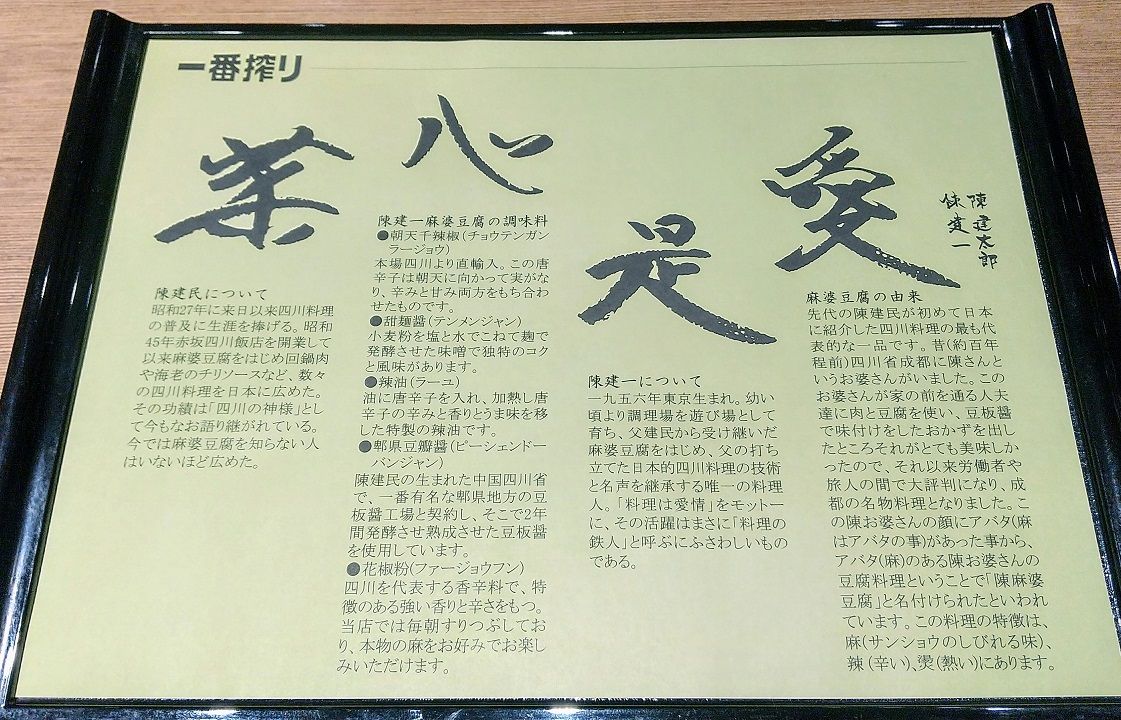 一番搾り
菜
心
是
愛
陳建太郎
陳建一
陳建民について
昭和27年に来日以来四川料理
の普及に生涯を捧げる。昭和
45年赤坂四川飯店を開業して
以来麻婆豆腐をはじめ回鍋肉
や海老のチリソースなど、数々
の四川料理を日本に広めた。
その功績は「四川の神様」とし
て今もなお語り継がれている。
今では麻婆豆腐を知らない人
はいないほど広めた。
陳建一麻婆豆腐の調味料
●朝天干辣椒(チョウテンガン
ラージョウ)
本場四川より直輸入。この唐
辛子は朝天に向かって実がな
り、辛みと甘み両方をもち合わ
せたものです。
●甜麺醤(テンメンジャン)
小麦粉を塩と水でこねて麹で
発酵させた味噌で独特のコク
と風味があります。
●辣油(ラーユ)
油に唐辛子を入れ、加熱し唐
辛子の辛みと香りとうま味を移
した特製の辣油です。
●郫県豆瓣醤(ピーシェンドー
バンジャン)
陳建民の生まれた中国四川省
で、一番有名な郫県地方の豆
板醤工場と契約し、そこで2年
間発酵させ熟成させた豆板醤
を使用しています。
●花椒粉(ファージョウフン)
四川を代表する香辛料で、特
徴のある強い香りと辛さをもつ。
当店では毎朝すりつぶしてお
り、本物の麻をお好みでお楽し
みいただけます。
陳建一について
一九五六年東京生まれ。幼い
頃より調理場を遊び場として
育ち、父建民から受け継いだ
麻婆豆腐をはじめ、父の打ち
立てた日本的四川料理の技術
と名声を継承する唯一の料理
人。「料理は愛情」をモットー
に、その活躍はまさに「料理の
鉄人」と呼ぶにふさわしいもの
である。
麻婆豆腐の由来
先代の陳建民が初めて日本
に紹介した四川料理の最も代
表的な一品です。昔(約百年
程前)四川省成都に陳さんと
いうお婆さんがいました。この
お婆さんが家の前を通る人夫
達に肉と豆腐を使い、豆板醤
で味付けをしたおかずを出し
たところそれがとても美味しか
ったので、それ以来労働者や
旅人の間で大評判になり、成
都の名物料理となりました。こ
の陳お婆さんの顔にアバタ(麻
はアバタの事)があった事から、
アバタ(麻)のある陳お婆さんの
豆腐料理ということで「陳麻婆
豆腐」と名付けられたといわれ
ています。この料理の特徴は、
麻(サンショウのしびれる味)、
辣(辛い)、燙(熱い)にあります。